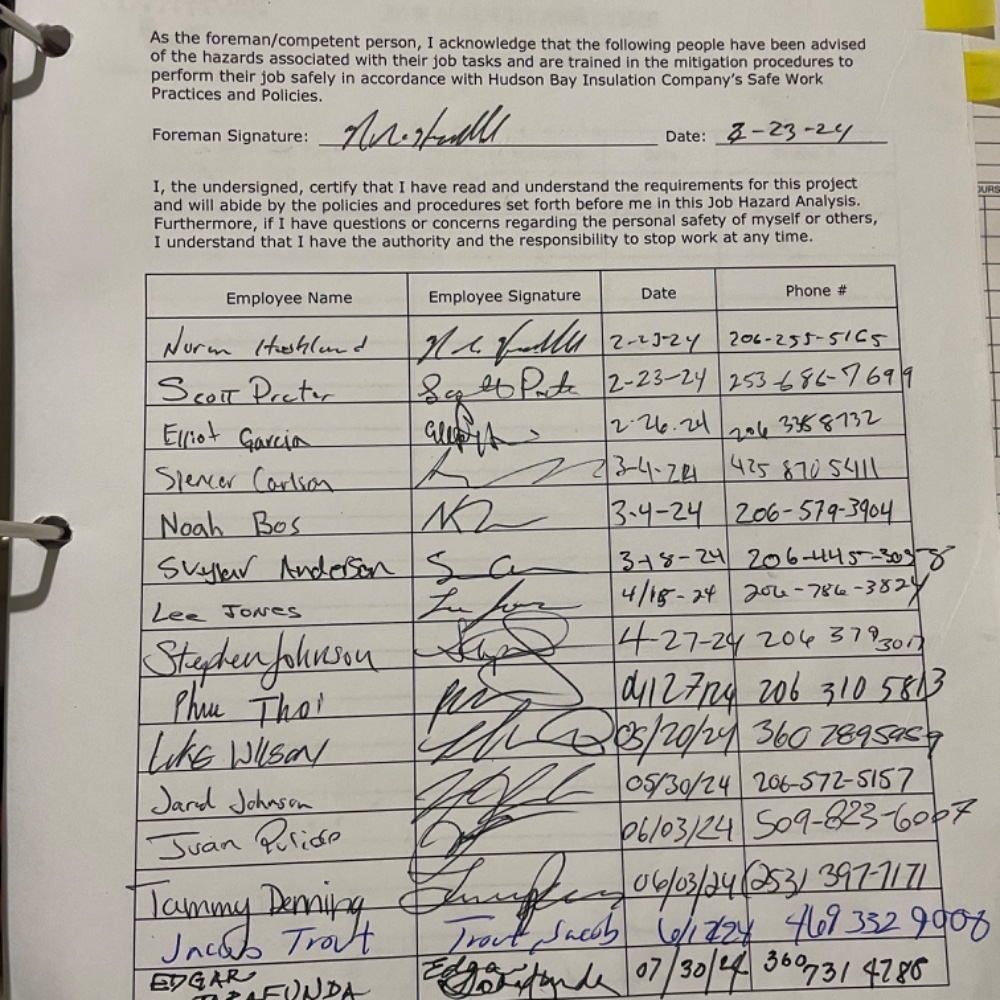 As the foreman/competent person, I acknowledge that the following people have been advised
of the hazards associated with their job tasks and are trained in the mitigation procedures to
perform their job safely in accordance with Hudson Bay Insulation Company's Safe Work
Practices and Policies.
Foreman Signature: Date: 2-23-24
I, the undersigned, certify that I have read and understand the requirements for this project
and will abide by the policies and procedures set forth before me in this Job Hazard Analysis.
Furthermore, if I have questions or concerns regarding the personal safety of myself or others,
I understand that I have the authority and the responsibility to stop work at any time.
OURS
Employee Name Employee Signature Date Phone #
Norm 2-23-24 206-255-5165
Scott Procter 2-23-24 253-686-7699
Elliot Garcia 2.26.24 206 338 8732
Spencer Carlson 3-4-24 425 870 5411
Noah Bos 3-4-24 206-579-3904
Anderson 3-18-24
Lee Jones 4/18-24 206-786-3824
Stephen Johnson 4-27-24 206 379 3017
Phuu Thoi 04/27/24 206 310 5813
Luke Wilson 05/20/24 360 789 5959
Jared Johnson 05/30/24 206-572-5157
Juan Pulido 06/03/24 509-823-6007
Tammy Deming 06/03/24 (253) 397-7171
Jacob Trout Trout Jacob 469 332 9006
EDGAR Edgar 07/30/24 360 731 4786